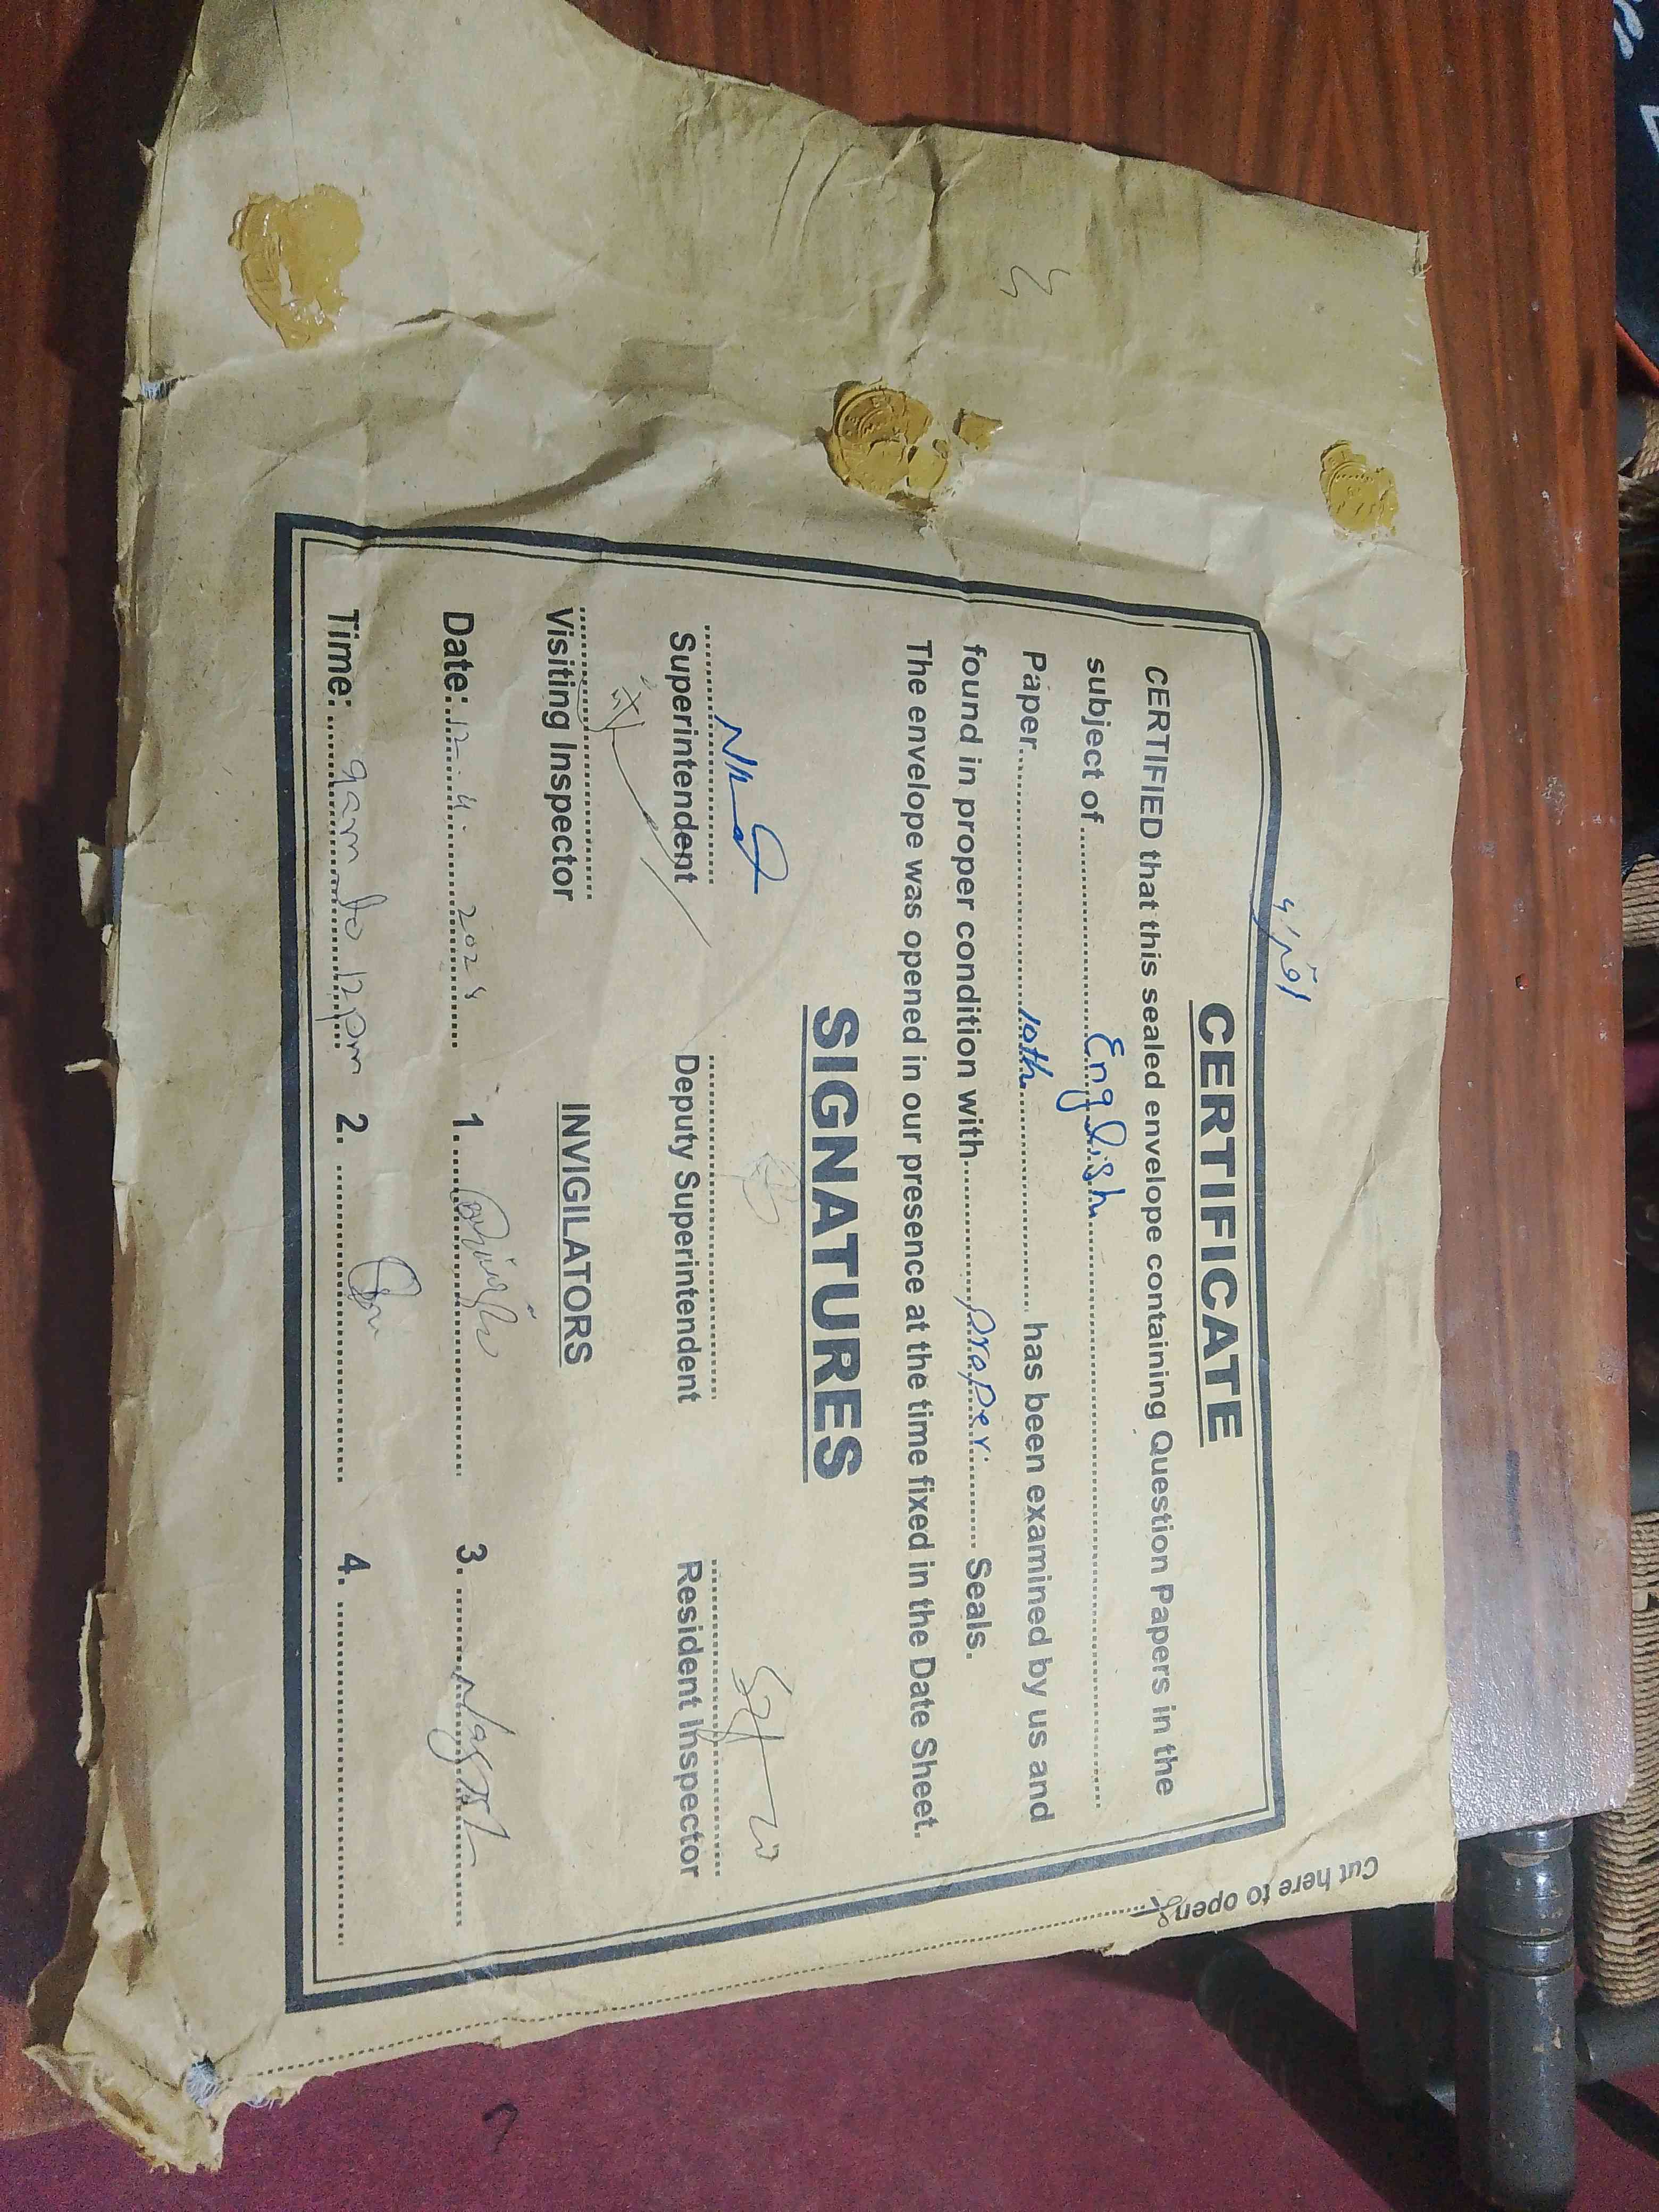 CERTIFICATE
CERTIFIED that this sealed envelope containing Question Papers in the
subject of English
Paper 10th has been examined by us and
found in proper condition with proper Seals.
The envelope was opened in our presence at the time fixed in the Date Sheet.
SIGNATURES
Superintendent Deputy Superintendent Resident Inspector
Visiting Inspector
INVIGILATORS
Date: 12 4 202 1. 3.
Time: 9am to 12pm 2. 4.
Cut here to open